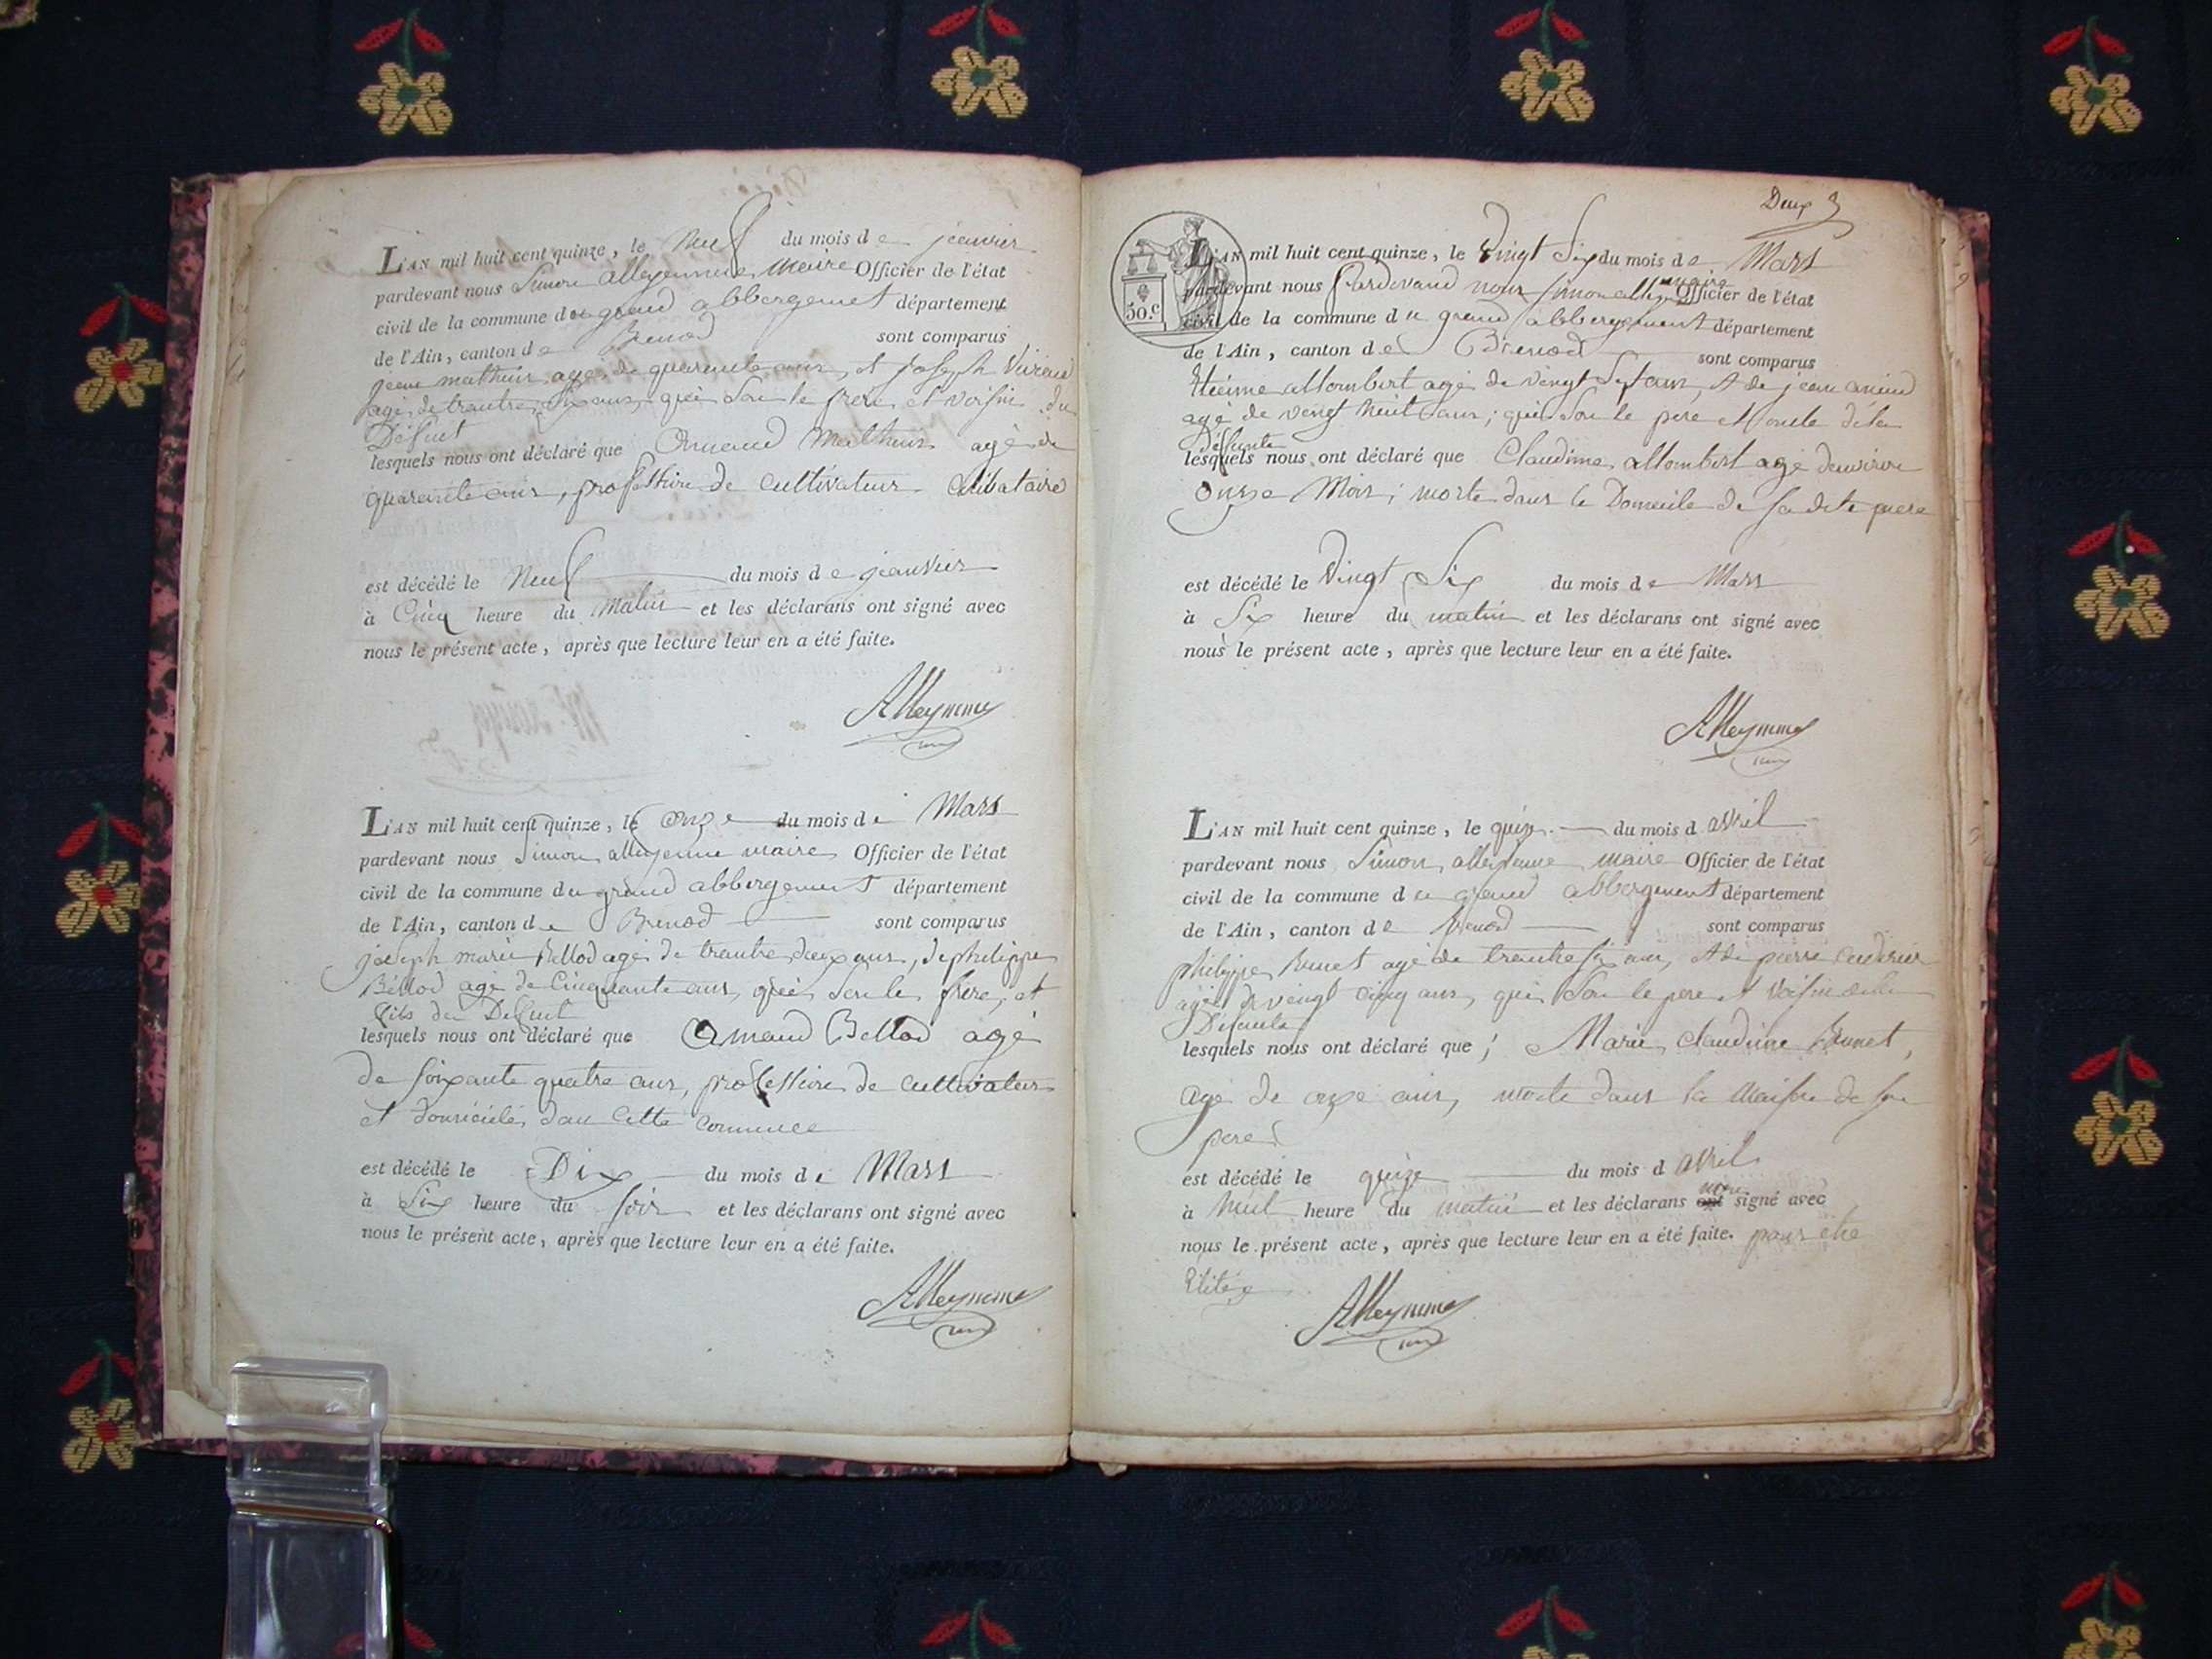 L'AN mil huit cent quinze, le Neuf du mois de jeanvier
pardevant nous Simon alleyemme Maire Officier de l'état
civil de la commune du grand abbergement département
de l'Ain, canton de Brenod sont comparus
jean mathieu agé de quarente ans, et joseph
agé de trantre six ans, qui son le frere et voisin du
Défunt
lesquels nous ont déclaré que mathieu agé de
quarente ans, profession de cultivateur Célibataire
est décédé le Neuf du mois de jeanvier
à Cinq heure du Matin et les déclarans ont signé avec
nous le présent acte, après que lecture leur en a été faite.
Alleymme
L'AN mil huit cent quinze, le onze du mois de Mars
pardevant nous Simon alleyemme maire Officier de l'état
civil de la commune du grand abbergement département
de l'Ain, canton de Brenod sont comparus
joseph marie Bellod agé de trantre deux ans, de philippe
Bellod agé de Cinquante ans, qui son le frere, et
fils du Defunt
lesquels nous ont déclaré que amand Bellod agé
de soixante quatre ans, profession de cultivateur
et domicilié dan cette commune
est décédé le Dix du mois de Mars
à Six heure du soir et les déclarans ont signé avec
nous le présent acte, après que lecture leur en a été faite.
Alleymme
Deux
50.c
L'AN mil huit cent quinze, le vingt Six du mois de Mars
pardevant nous Pardevand nous simon maire Officier de l'état
civil de la commune du grand abbergement département
de l'Ain, canton de Brenod sont comparus
Etiénne allombert agé de vingt Sept ans, et de jean
agé de vengt huit ans; qui son le pere et oncle déla
Défunte
lesquels nous ont déclaré que Claudine allombert agé denviron
onze Mois; morte dans le Domicile de sa dite
est décédé le Vingt Six du mois de Mars
à Six heure du matin et les déclarans ont signé avec
nous le présent acte, après que lecture leur en a été faite.
Alleymme
L'AN mil huit cent quinze, le quinze du mois d avril
pardevant nous Simon alleyemme maire Officier de l'état
civil de la commune du grand abbergement département
de l'Ain, canton de Brenod sont comparus
philippe Brunet agé de trantre six ans, et de pierre
agé de vengt cinq ans, qui son le pere et voisin dela
Défunte
lesquels nous ont déclaré que; Marie claudine Brunet,
agé de onze ans, morte dans la Maison de son
pere
est décédé le quinze du mois d avril
à neuf heure du matin et les déclarans ont signé avec
nous le présent acte, après que lecture leur en a été faite. pour etre
Alleymme